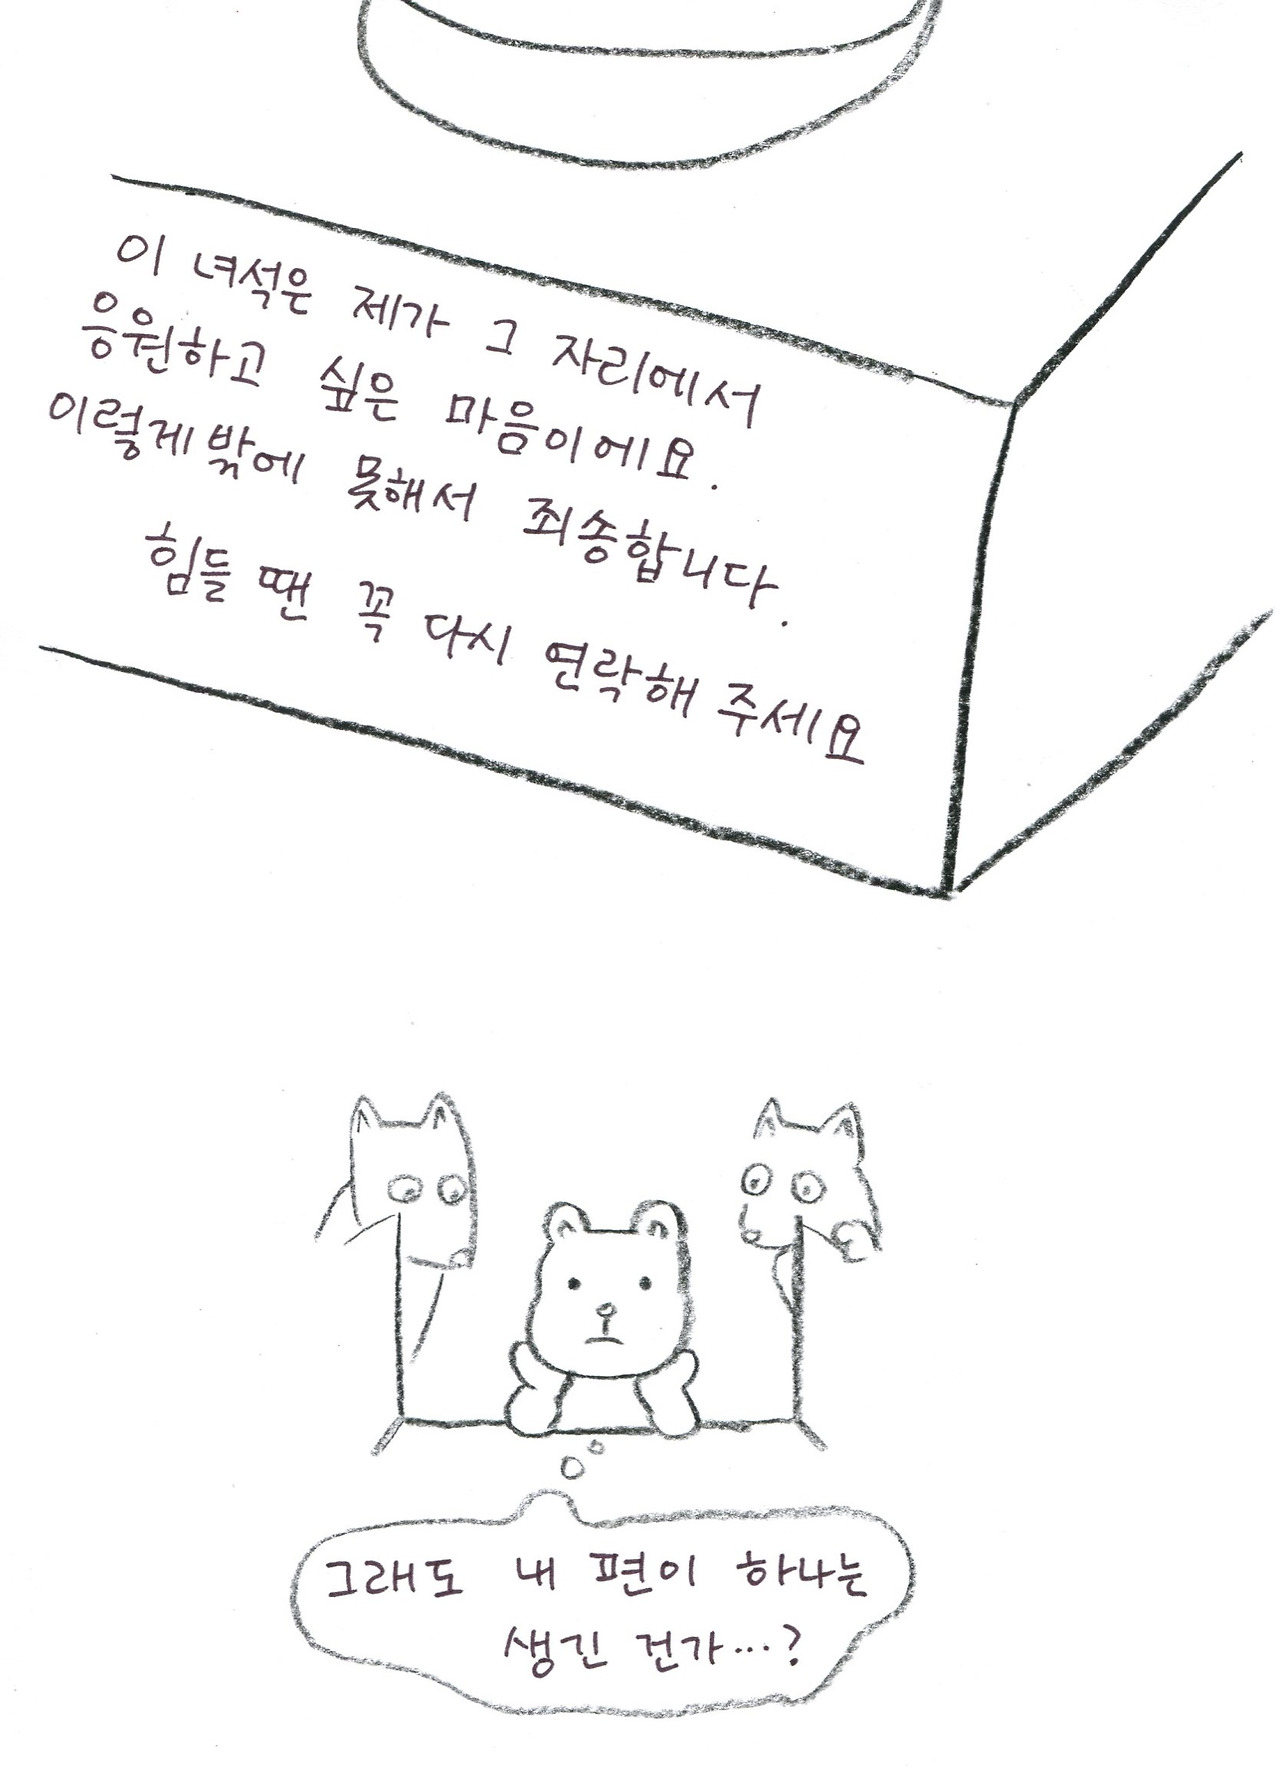 이 녀석은 제가 그 자리에서
응원하고 싶은 마음이에요.
이렇게밖에 못해서 죄송합니다.
힘들 땐 꼭 다시 연락해 주세요
그래도 내 편이 하나는
생긴 건가...?